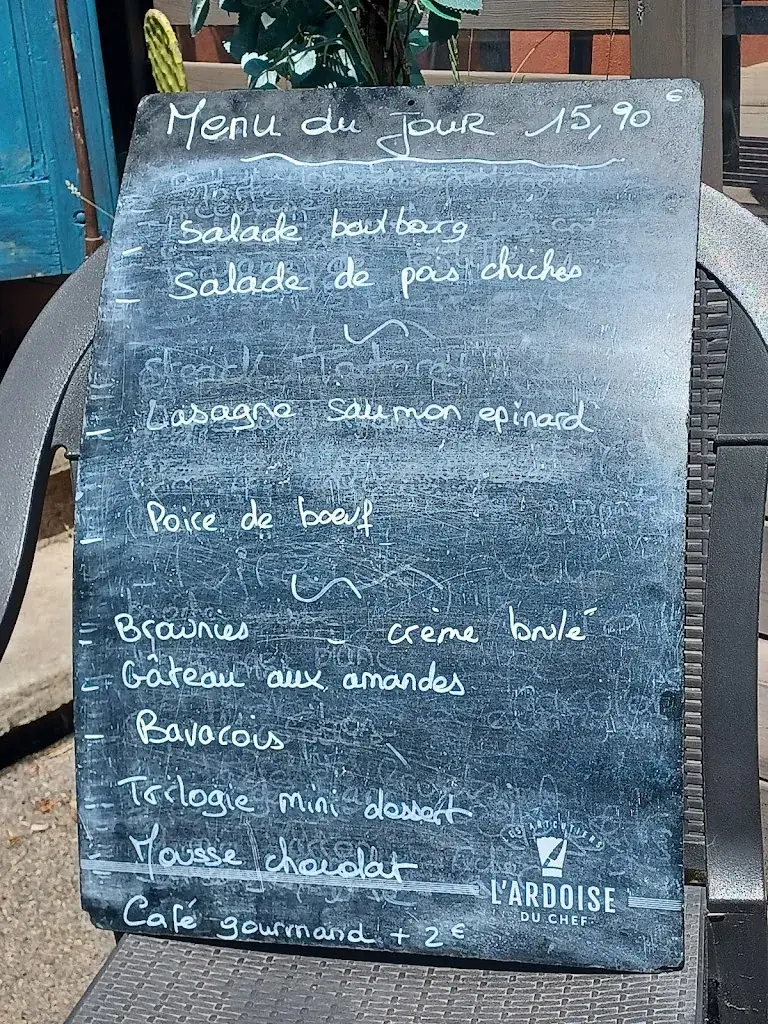 Menu du jour 15,90 €
- Salade boulbourg
- Salade de pois chiches
- Lasagne saumon epinard
- Poire de boeuf
- Brownies - crème brulé
- Gâteau aux amandes
- Bavarois
- Trilogie mini dessert
- Mousse chocolat
L'ARDOISE
DU CHEF
Café gourmand + 2 €